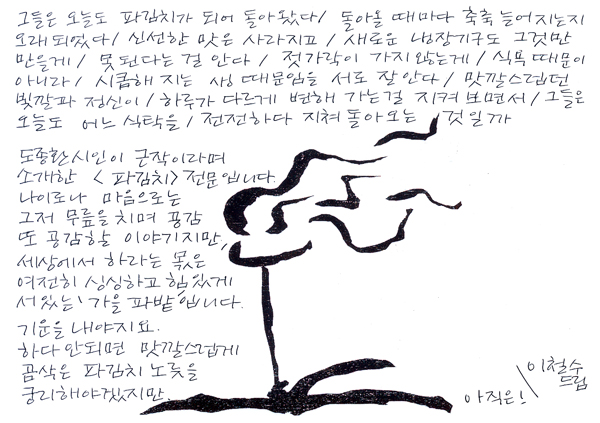 그들은 오늘도 파김치가 되어 돌아왔다/ 돌아올 때마다 축축 늘어지는지
오래 되었다/ 신선한 맛은 사라지고/ 새로운 냉장기구도 그것만
만들게/ 못 된다는 걸 안다/ 젓가락이 가지 않는게/ 식욕 때문이
아니라/ 시큼해 지는 생 때문임을 서로 잘 안다/ 맛깔스럽던
빛깔과 정신이/ 하루가 다르게 변해 가는걸 지켜 보면서/ 그들은
오늘도 어느 식탁을/ 전전하다 지쳐 돌아오는 것일까
도종환시인이 근작이라며
소개한 <파김치> 전문입니다.
나이로나 마음으로는
그저 무릎을 치며 공감
또 공감할 이야기지만,
세상에서 하라는 몫은
여전히 싱싱하고 힘있게
서있는 '가을 파밭'입니다.
기운을 내야지요.
하다 안되면 맛깔스럽게
곰삭은 파김치 노릇을
궁리해야겠지만.
아직은!
이철수
드림